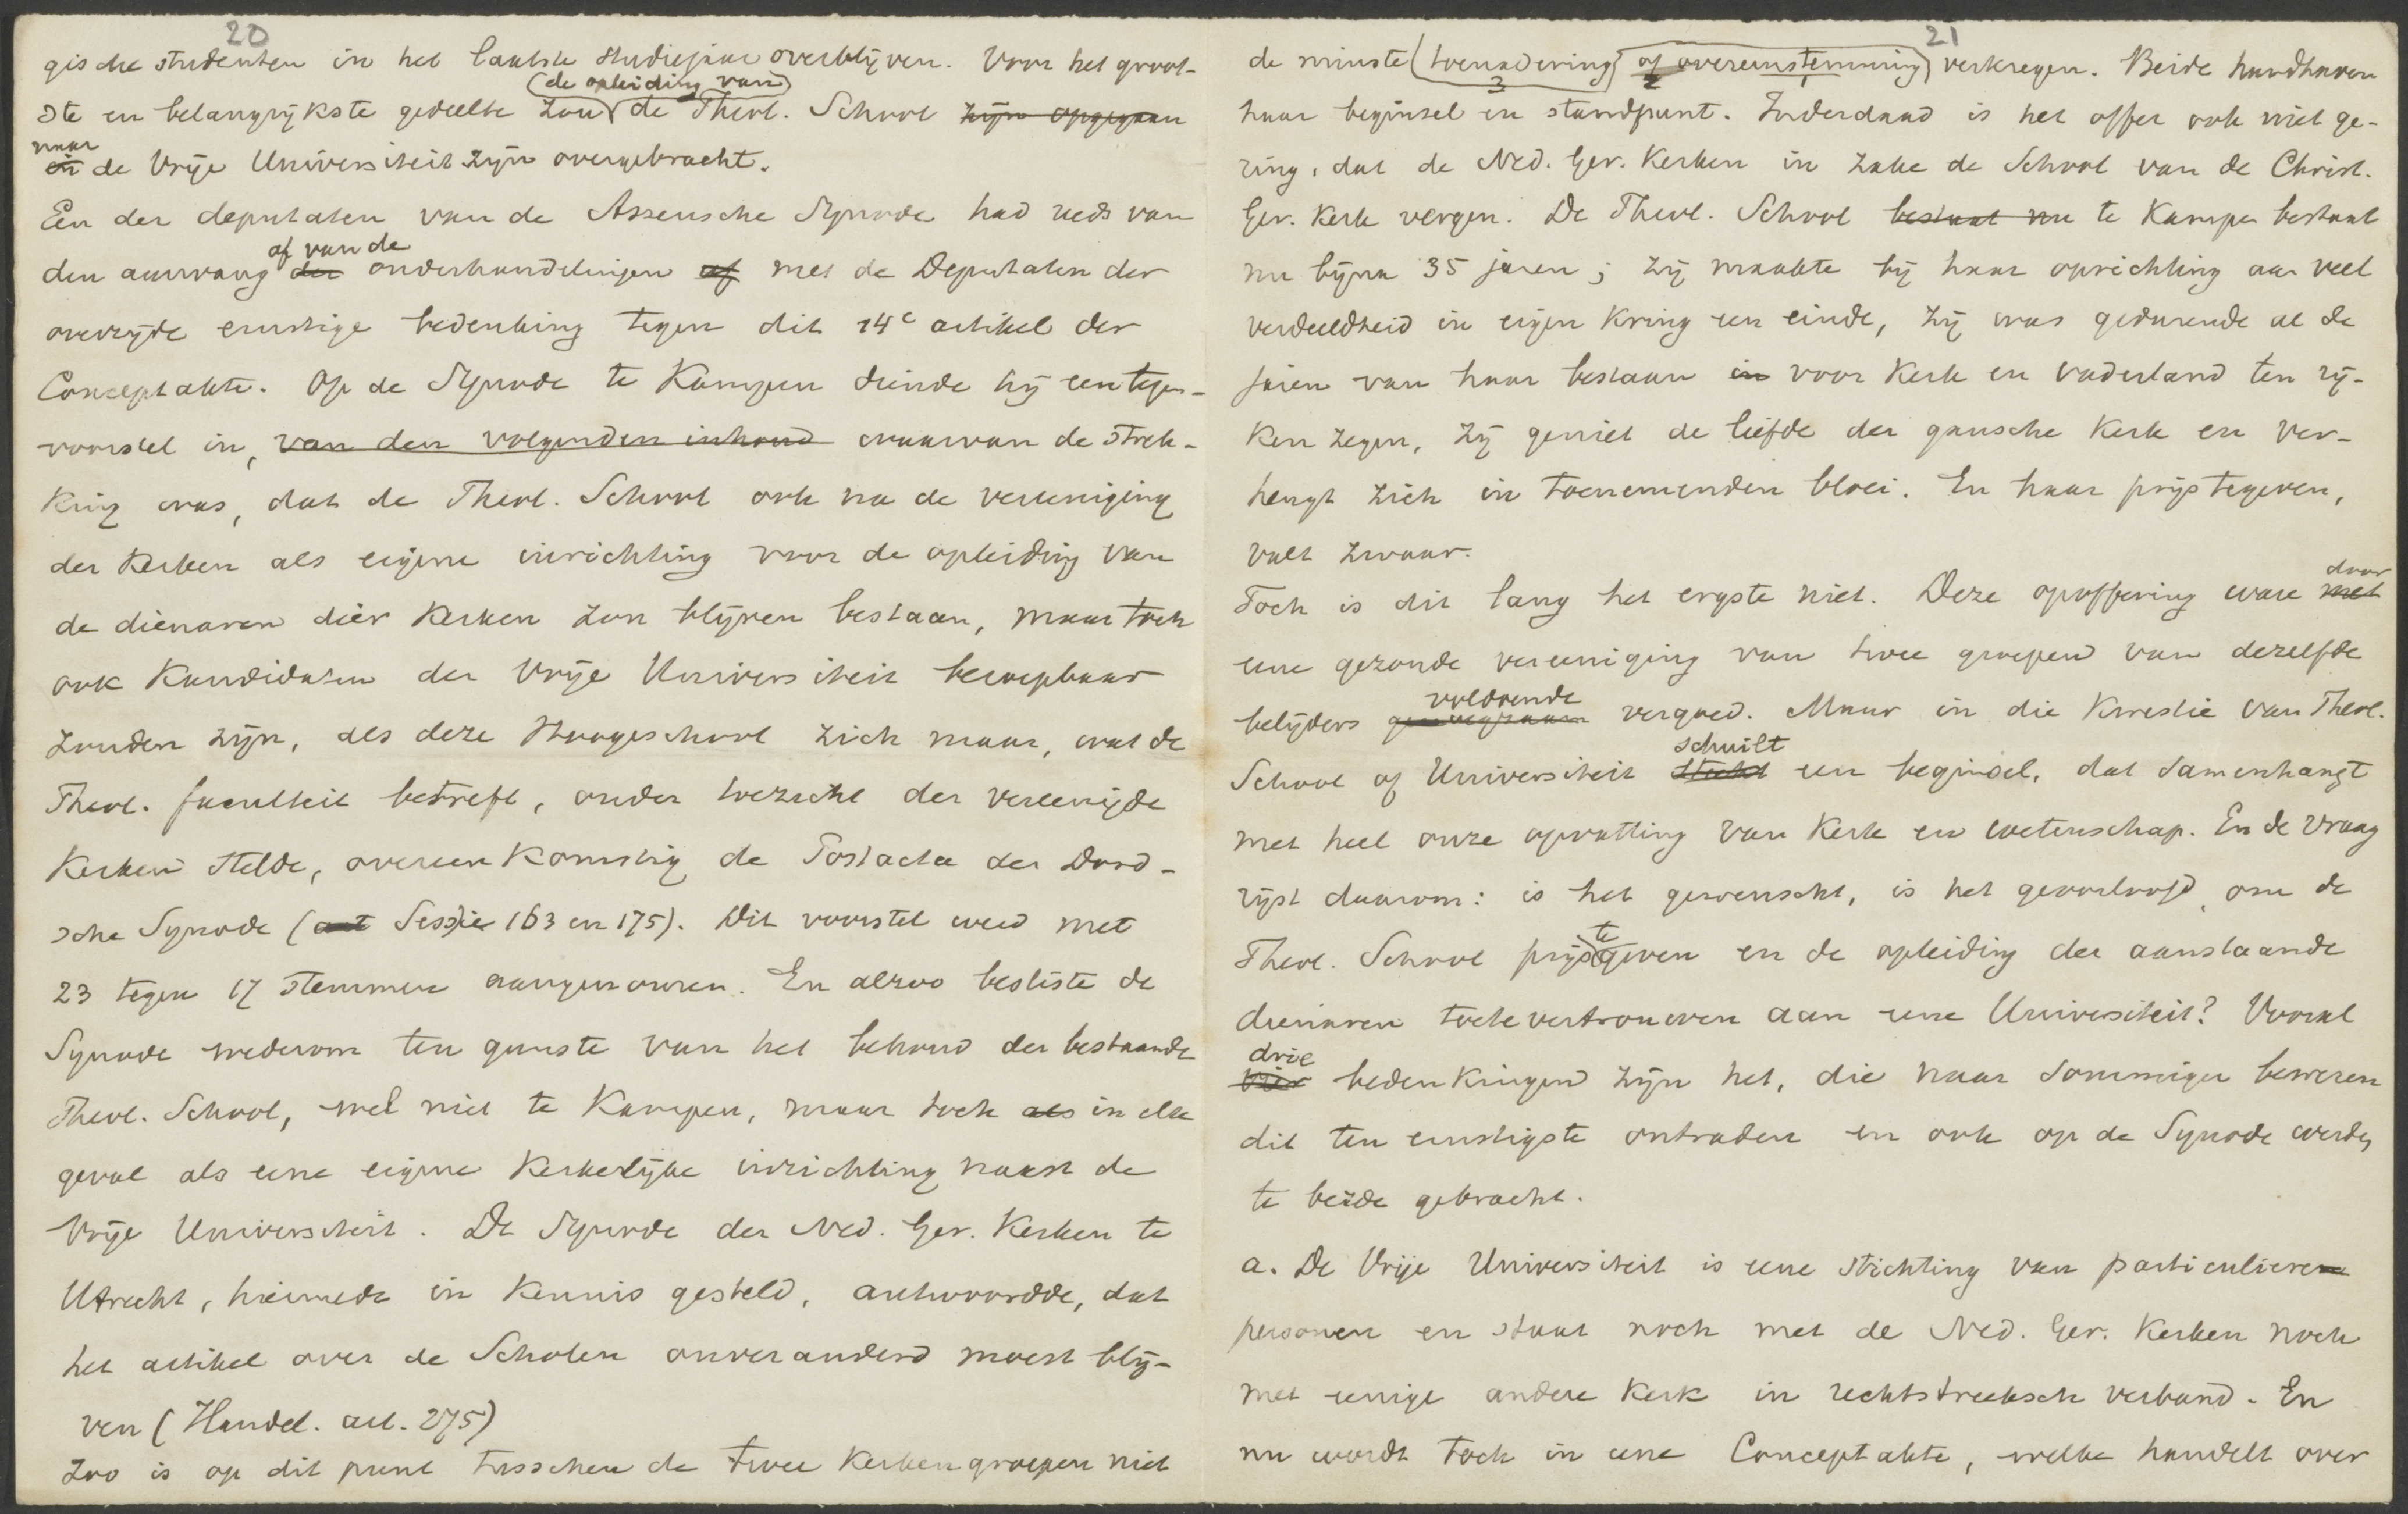 20
gische studenten in het laatste studiejaar overblijven. Voor het groot-
(de opleiding van)
ste en belangrijkste gedeelte zou de Theol. School zijn opgegaan
naar
in de Vrije Universiteit zijn overgebracht.
Een der deputaten van de Assensche Synode had reeds van
af van de
den aanvang der onderhandelingen af met de Deputaten der
overzijde ernstige bedenking tegen dit 14e artikel der
Conceptakte. Op de Synode te Kampen diende hij een tegen-
voorstel in, van den volgenden inhoud waarvan de strek-
king was, dat de Theol. School ook na de vereeniging
der Kerken als eigene inrichting voor de opleiding van
de dienaren dier Kerken zou blijven bestaan, maar toch
ook Kandidaten der Vrije Universiteit beroepbaar
zouden zijn, als deze Hoogeschool zich maar, wat de
Theol. faculteit betreft, onder toezicht der vereenigde
Kerken stelde, overeenkomstig de Postacta der Dord-
sche Synode (Sessie 163 en 175). Dit voorstel werd met
23 tegen 17 stemmen aangenomen. En alzoo besliste de
Synode wederom ten gunste van het behoud der bestaande
Theol. School, wel niet te Kampen, maar toch als in elk
geval als eene eigene Kerkelijke inrichting naast de
Vrije Universiteit. De Synode der Ned. Ger. Kerken te
Utrecht, hiermede in kennis gesteld, antwoordde, dat
het artikel over de Scholen onveranderd moest blij-
ven (Handel. art. 275)
Zoo is op dit punt tusschen de twee Kerkengroepen niet
21
de minste (toenadering) of overeenstemming) verkregen. Beide handhaven
3 2 1
haar beginsel en standpunt. Inderdaad is het offer ook niet ge-
ring, dat de Ned. Ger. Kerken in zake de School van de Christ.
Ger. Kerk vergen. De Theol. School bestaat nu te Kampen bestaat
nu bijna 35 jaren; zij maakte bij haar oprichting aan veel
verdeeldheid in eigen kring een einde, zij was gedurende al de
jaren van haar bestaan in voor Kerk en vaderland ten rij-
ken zegen, zij geniet de liefde der gansche Kerk en ver-
heugt zich in toenemenden bloei. En haar prijs te geven,
valt zwaar.
door
Toch is dit lang het ergste niet. Deze opoffering ware met
eene gezonde vereeniging van twee groepen van dezelfde
voldoende
belijders genoegzaam vergoed. Maar in die kwestie van Theol.
schuilt
School of Universiteit steekt een beginsel, dat samenhangt
met heel onze opvatting van Kerk en wetenschap. En de vraag
rijst daarom: is het gewenscht, is het geoorloofd, om de
te
Theol. School prijs geven en de opleiding der aanstaande
dienaren toe te vertrouwen aan eene Universiteit? Vooral
drie
vier bedenkingen zijn het, die naar sommiger beweren
dit ten ernstigste ontraden en ook op de Synode werden
te berde gebracht.
a. De Vrije Universiteit is eene stichting van particuliere
personen en staat noch met de Ned. Ger. Kerken noch
met eenige andere Kerk in rechtstreeksch verband. En
nu wordt toch in eene Conceptakte, welke handelt over